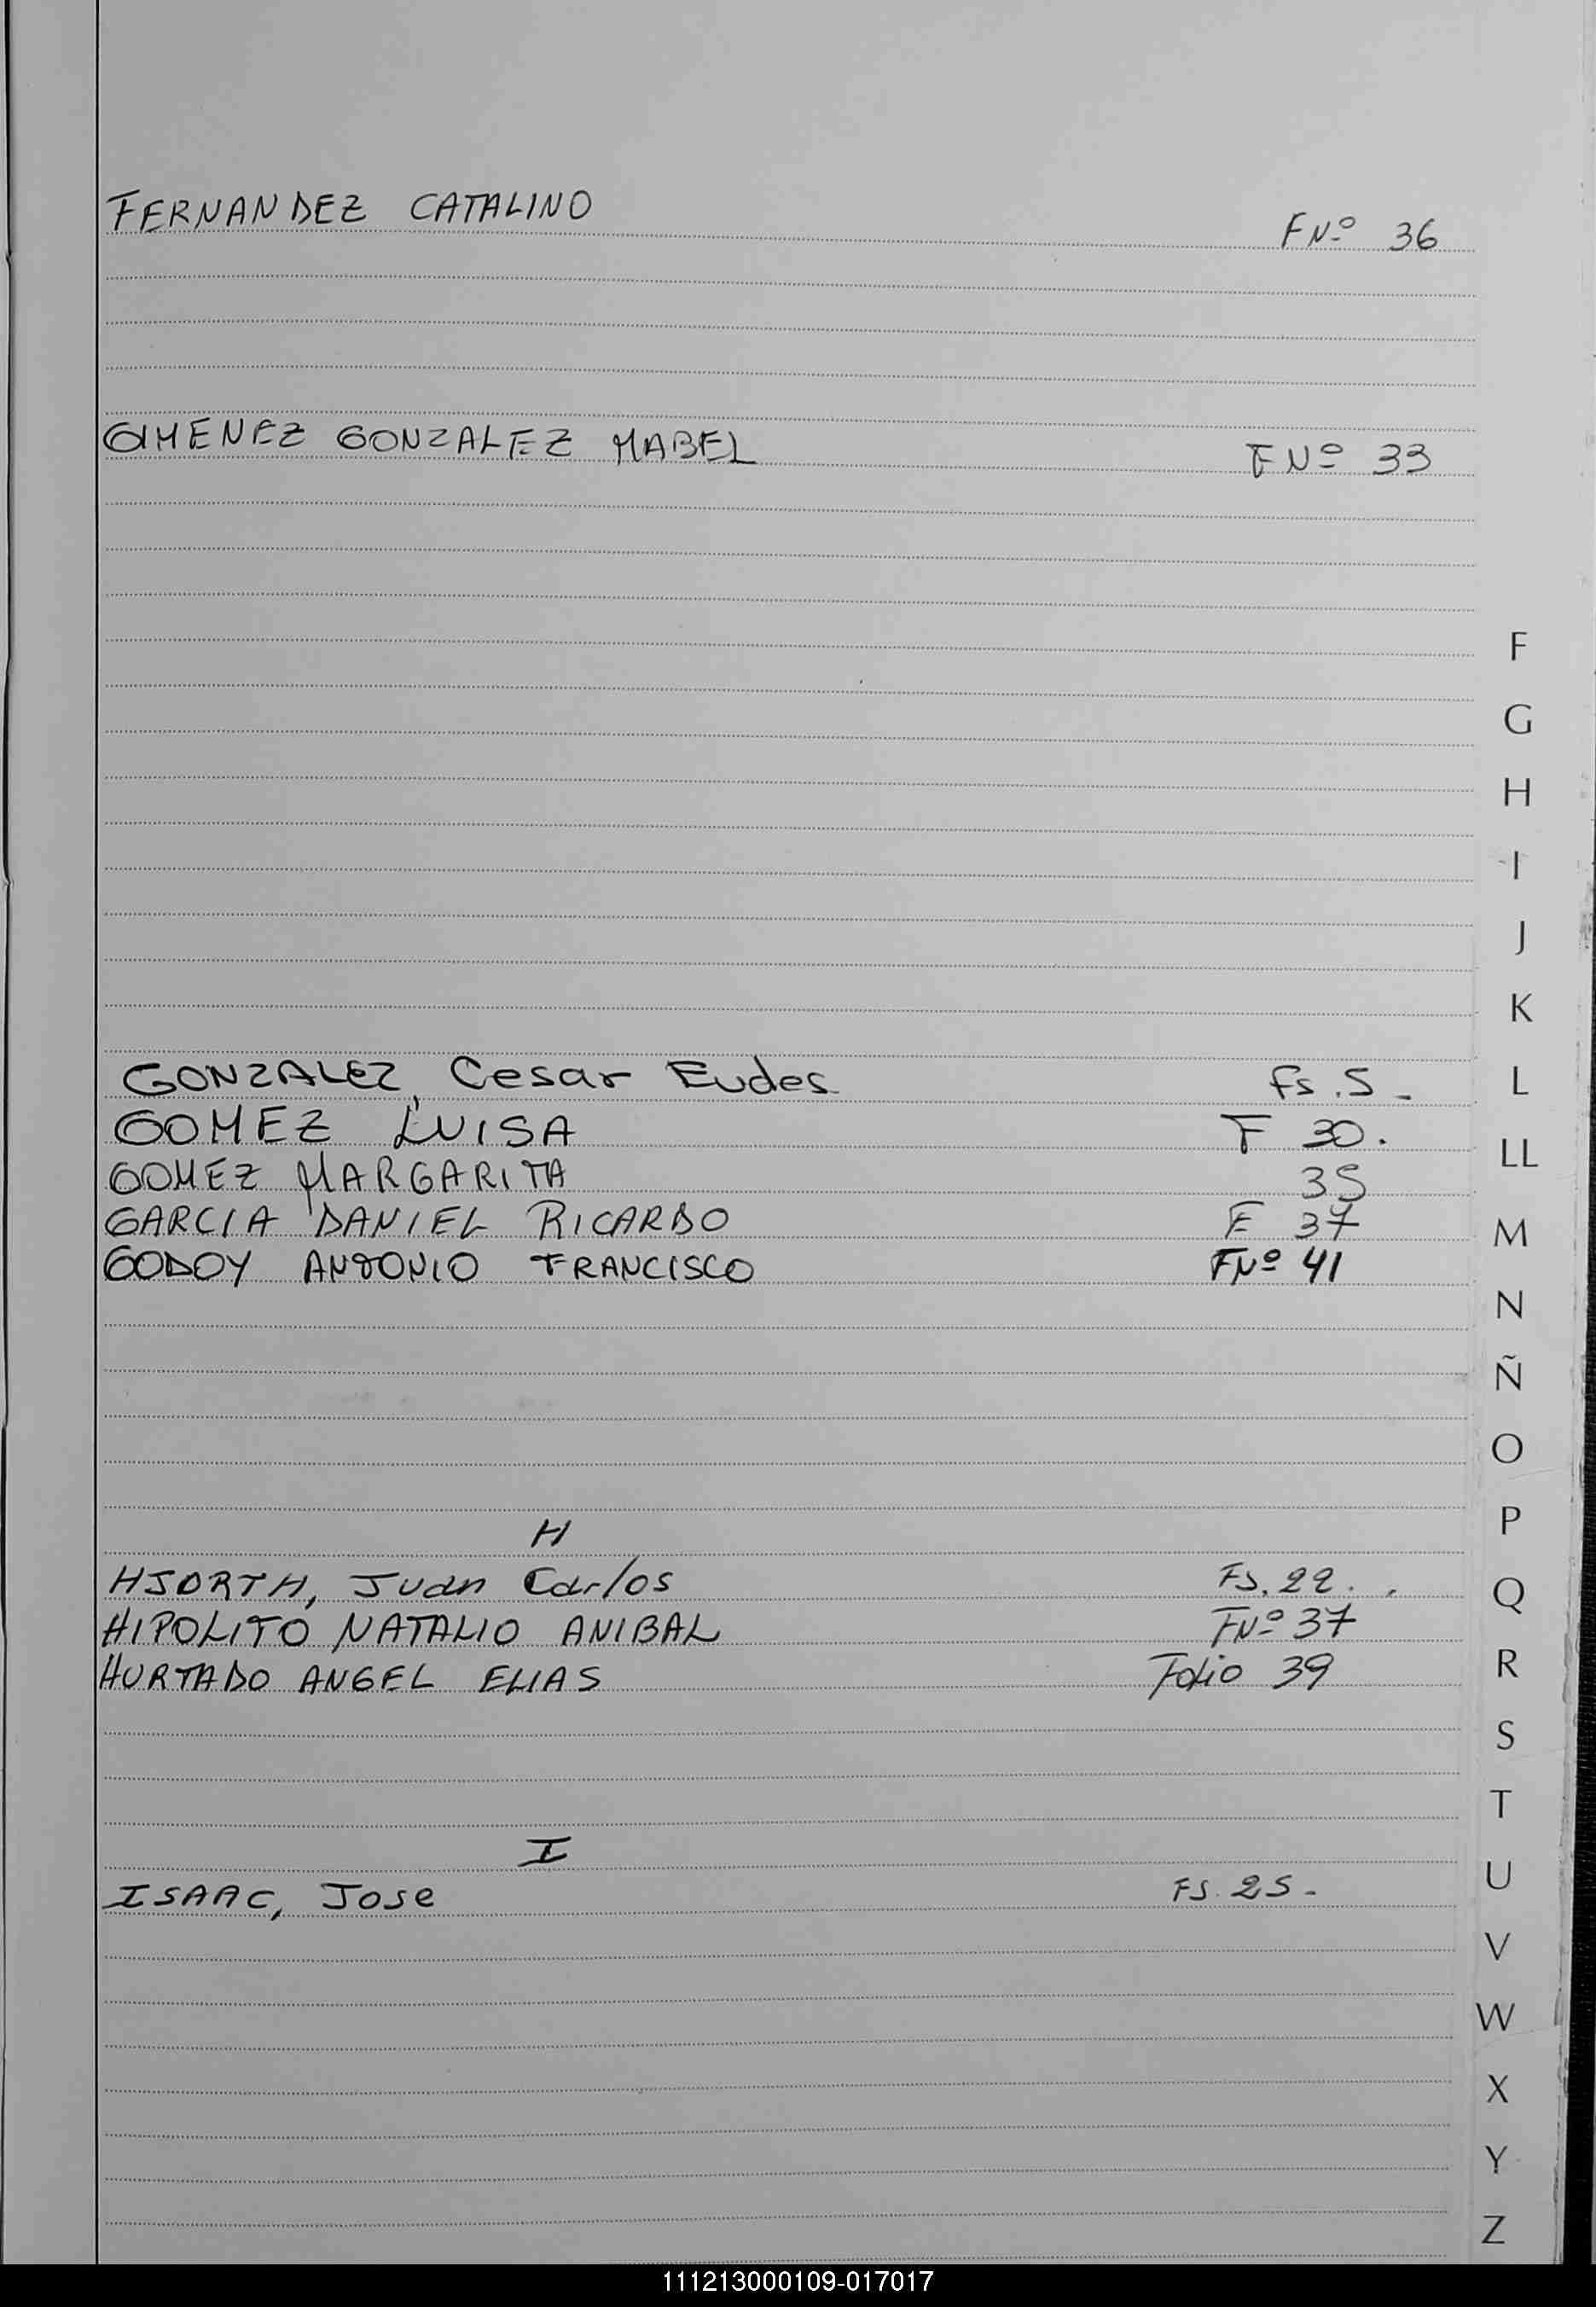 FERNANDEZ CATALINO FNº 36
GIMENEZ GONZALEZ MABEL FNº 33
F
G
H
I
J
K
GONZALEZ, Cesar Eudes Fs. 5 - L
GOMEZ LUISA F 30.
LL
GOMEZ MARGARITA 35
GARCIA DANIEL RICARDO F 37
M
GODOY ANTONIO FRANCISCO FNº 41
N
Ñ
O
P
H
HJORTH, Juan Carlos Fs. 22. .
Q
HIPOLITO NATALIO ANIBAL FNº 37
HURTADO ANGEL ELIAS Folio 39
R
S
T
I
U
ISAAC, Jose FS. 25 -
V
W
X
Y
Z
111213000109-017017